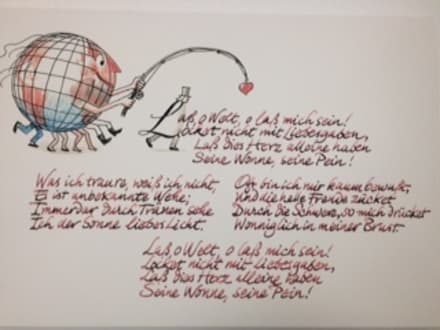 Laß o Welt, o laß mich sein!
Locket nicht mit Liebesgaben,
Laßt dies Herz alleine haben
Seine Wonne, seine Pein!
Was ich traure, weiß ich nicht,
Es ist unbekanntes Wehe;
Immerdar durch Tränen sehe
Ich der Sonne liebes Licht.
Oft bin ich mir kaum bewußt,
Und die helle Freude zücket
Durch die Schwere, so mich drücket
Wonniglich in meiner Brust.
Laß o Welt, o laß mich sein!
Locket nicht mit Liebesgaben,
Laßt dies Herz alleine haben
Seine Wonne, seine Pein!